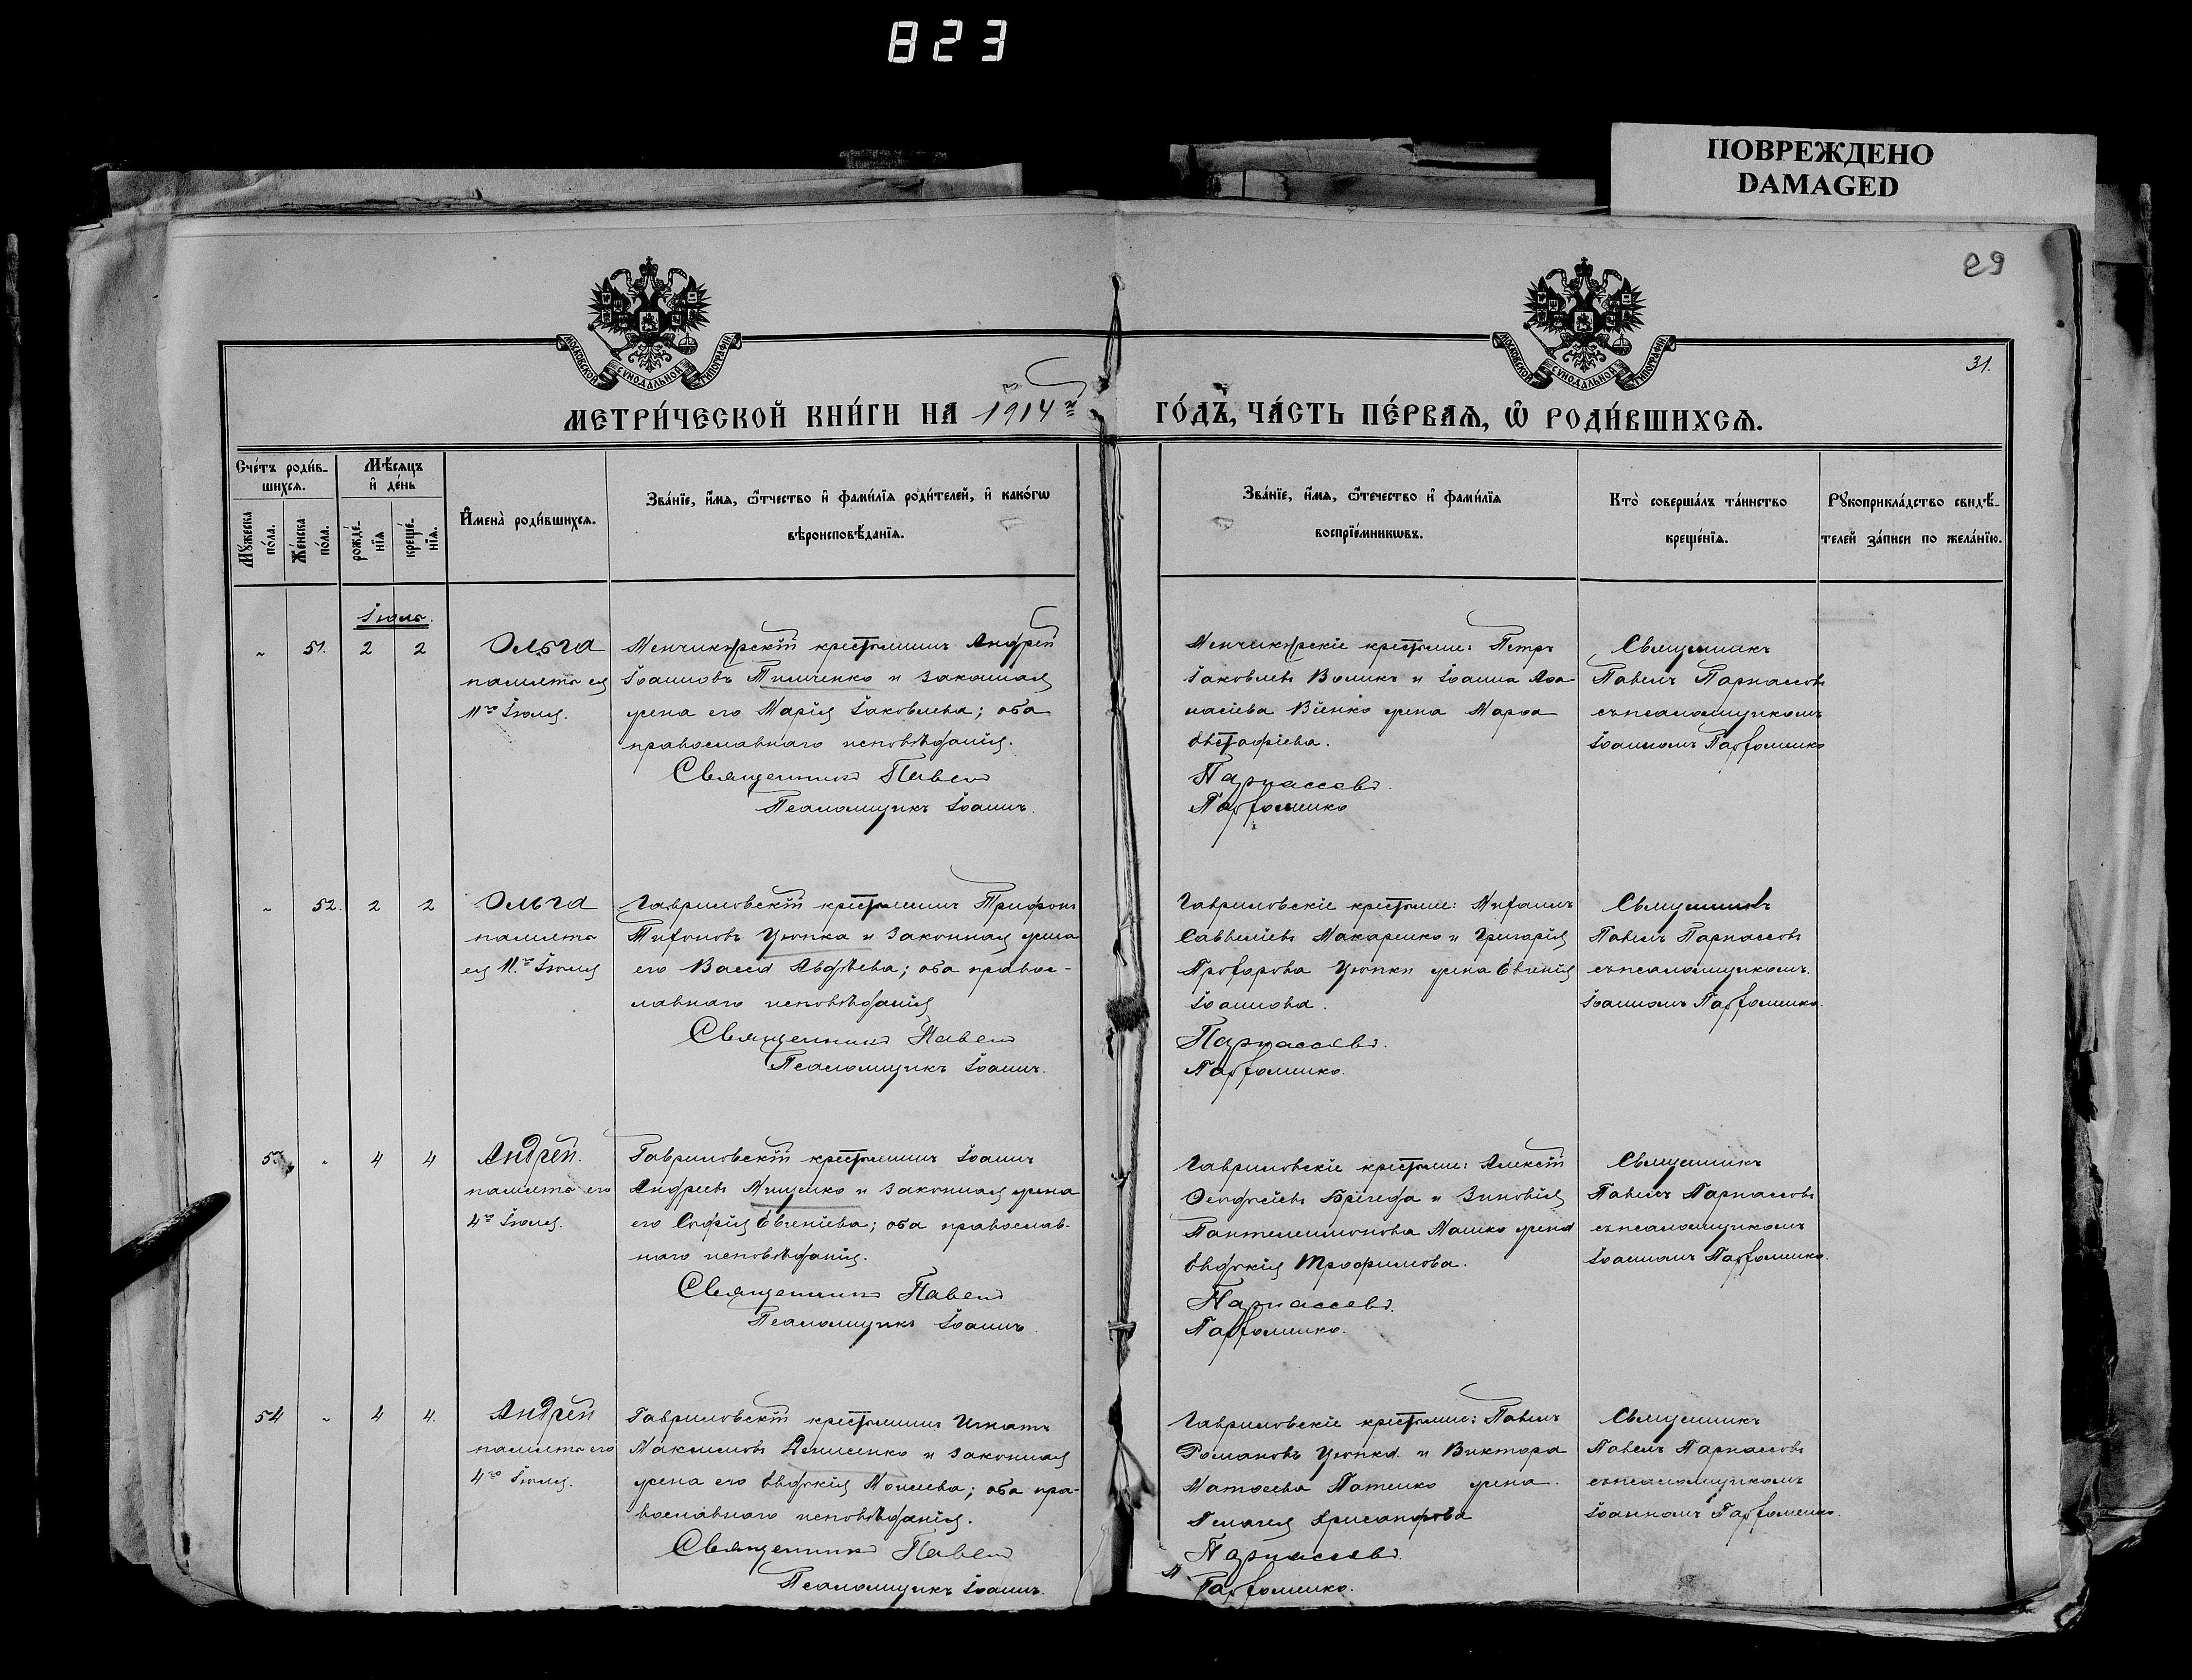 823
ПОВРЕЖДЕНО
DAMAGED
29
31.
МОСКОВСКОЙ СѴНОДАЛЬНОЙ ТИПОГРАФІИ
МОСКОВСКОЙ СѴНОДАЛЬНОЙ ТИПОГРАФІИ
МЕТРИ́ЧЕСКОЙ КНИ́ГИ НА 1914й ГО́ДЪ, ЧА́СТЬ ПЕ́РВАѦ, Ѽ РОДИ́ВШИХСѦ.
Сче́тъ роди́в-
шихсѧ.
Мꙋжеска по́ла.
Же́нска по́ла.
Мѣ́сѧцъ
и҆ де́нь
рожде́-
нїѧ
креще́-
нїѧ.
И҆мена̀ роди́вшихсѧ.
Зва́нїе, и҆́мѧ, ѻ҆́тчество и҆ фами́лїѧ роди́телей, и҆ како́гѡ
вѣроисповѣ́данїѧ.
Зва́нїе, и҆́мѧ, ѻ҆́течество и҆ фами́лїѧ
воспрїе́мникѡвъ.
Кто̀ соверша́лъ та́инство
креще́нїѧ.
Рꙋкоприкла́дство свидѣ́-
телей за́писи по жела́нїю.
Іюль.
" 51. 2 2
Ольга
память ея
11го Іюля.
крестьянинъ Андрей
Іоанновъ Тимченко и законная
жена его Марія Іаковлева; оба
православнаго исповѣданія.
Священникъ Павелъ
Псаломщикъ Іоаннъ.
крестьяне: Петръ
Іаковлевъ Воликъ и Іоанна Аѳа-
насіева жена Марѳа
Евстафіева.
Парнассовъ.
Парфоменко
Священникъ
Павелъ Парнассовъ
съ псаломщикомъ
Іоанномъ Парфоменко
" 52. 2 2
Ольга
память
ея 11го Іюля
Гавриловскій крестьянинъ Трифонъ
Тихоновъ Цюпка и законная жена
его Васса Авдѣева; оба правос-
лавнаго исповѣданія
Священникъ Павелъ
Псаломщикъ Іоаннъ.
Гавриловскіе крестьяне: Михаилъ
Савеліевъ Макаренко и Григорія
Прохорова Цюпки жена Евгенія
Іоаннова.
Парнассовъ.
Парфоменко.
Священникъ
Павелъ Парнассовъ
съ псаломщикомъ.
Іоанномъ Парфоменко.
53 " 4 4
Андрей.
память его
4го Іюля.
Гавриловскій крестьянинъ Іоаннъ
Андреевъ Мищенко и законная жена
его Софія Евгеніева; оба православ-
наго исповѣданія.
Священникъ Павелъ
Псаломщикъ Іоаннъ.
Гавриловскіе крестьяне: Алексій
Ѳеодосіевъ и Зиновія
Пантелеимонова Машко жена
Евдокія Трофимова.
Парнассовъ.
Парфоменко.
Священникъ
Павелъ Парнассовъ
съ псаломщикомъ
Іоанномъ Парфоменко.
54 " 4 4.
Андрей
память его
4го Іюля.
Гавриловскій крестьянинъ Игнатъ
Максимовъ Денисенко и законная
жена его Евдокія Моисеева; оба пра-
вославнаго исповѣданія.
Священникъ Павелъ
Псаломщикъ Іоаннъ.
Гавриловскіе крестьяне: Павелъ
Романовъ Цюпка и Виктора
Матѳеева Патенко жена
Пелагея Хрисанфова
Парнассовъ.
Парфоменко.
Священникъ
Павелъ Парнассовъ
съ псаломщикомъ
Іоанномъ Парфоменко.